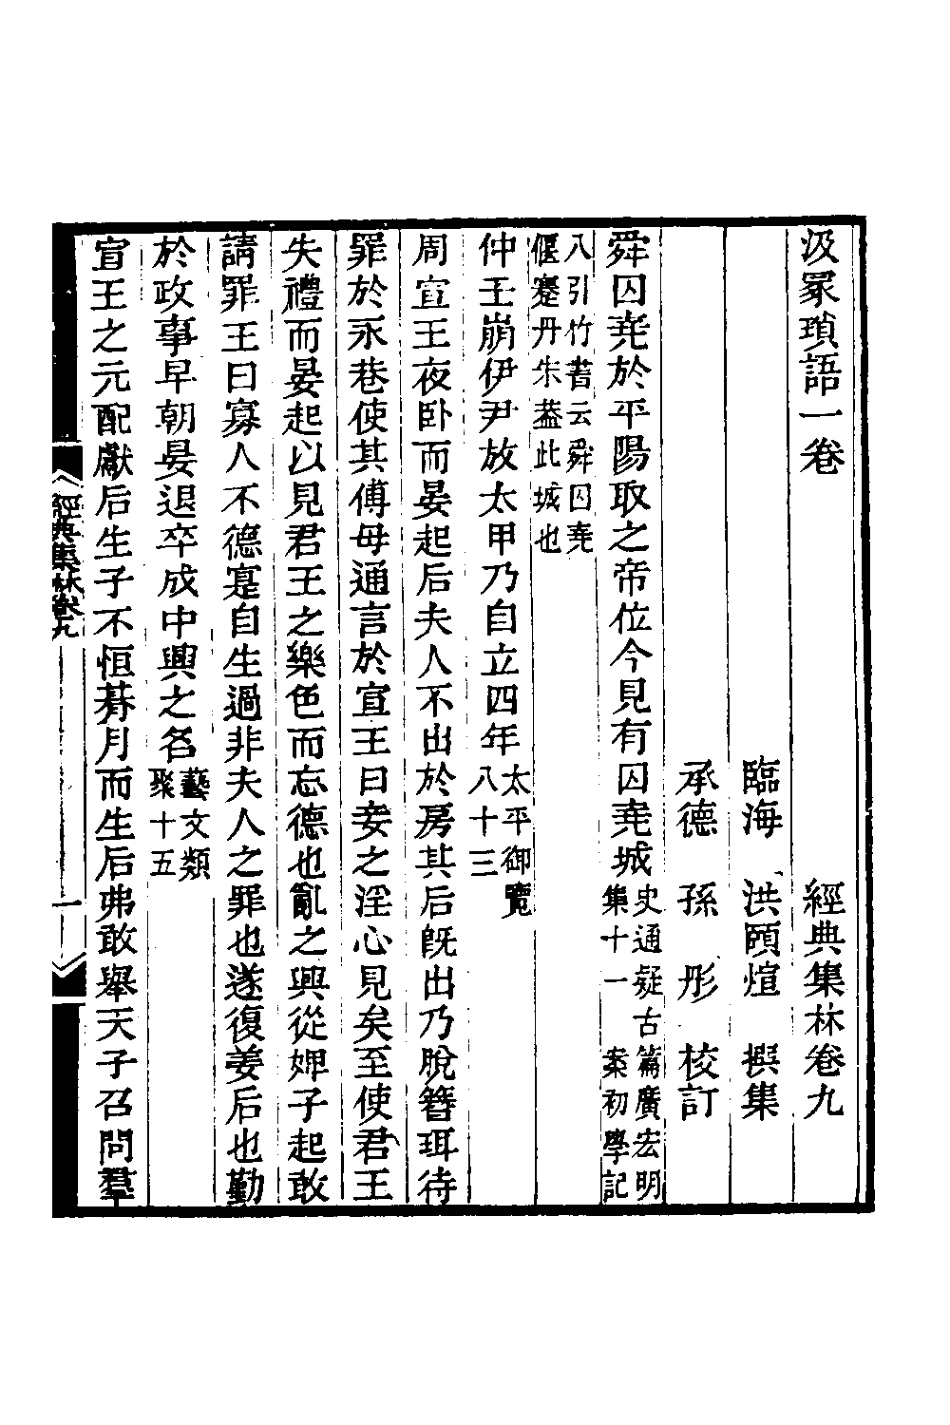 汲冢瑣語一卷　經典集林卷九
臨海　洪頤煊　撰集
承德　孫　彤　校訂
舜囚堯於平陽取之帝位今見有囚堯城史通疑古篇廣宏明集十一　案初學記
八引竹書云舜囚堯偃蹇丹朱葢此城也
仲壬崩伊尹放太甲乃自立四年太平御覽八十三
周宣王夜卧而晏起后夫人不出於房其后旣出乃脫簪珥待
罪於永巷使其傅母通言於宣王曰妾之淫心見矣至使君王
失禮而晏起以見君王之樂色而忘德也亂之興從婢子起敢
請罪王曰寡人不德寔自生過非夫人之罪也遂復姜后也勤
於政事早朝晏退卒成中興之名藝文類聚十五
宣王之元配獻后生子不恒朞月而生后弗敢舉天子召問羣
經典集林卷九　一